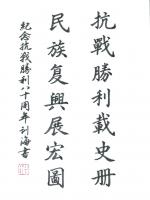 抗戰勝利載史册
民族复興展宏圖
紀念抗戰勝利八十周年刘海書